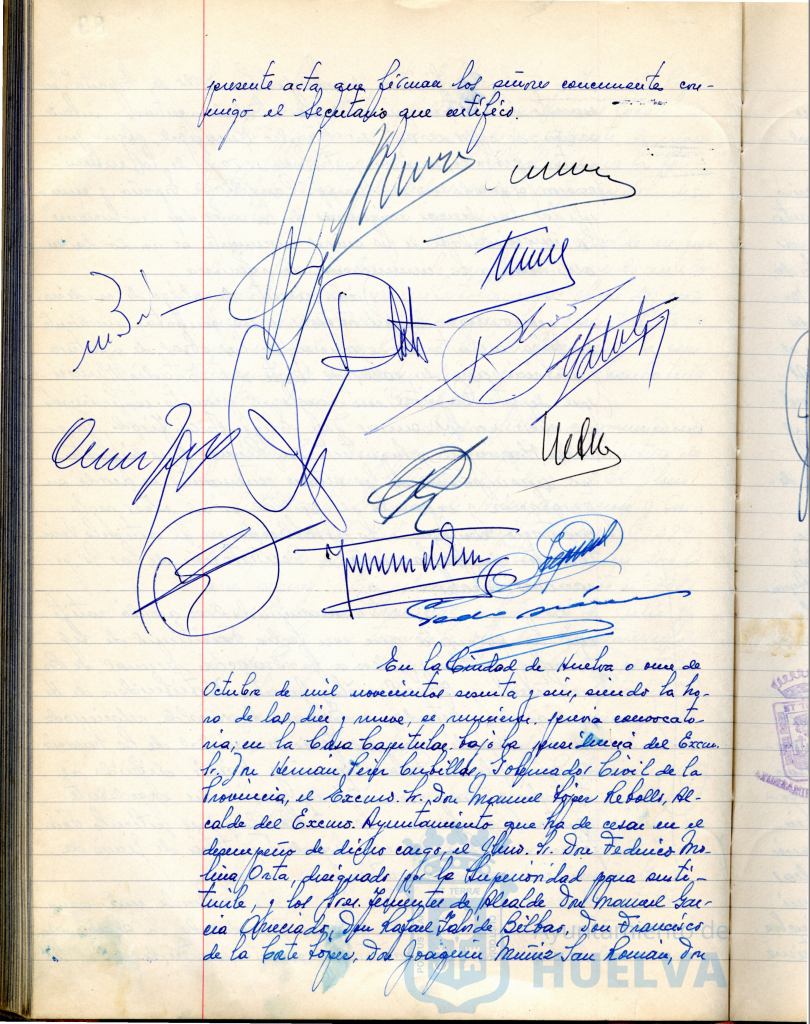 presente acta, que firman los señores concurrentes con-
migo el Secretario que certifico.
En la Ciudad de Huelva a once de
Octubre de mil novecientos sesenta y seis, siendo la ho-
ra de las diez y nueve, se reunieron previa convocato-
ria, en la Casa Capitular, bajo la presidencia del Excmo.
Sr. Don Hernán Pérez Cubillas, Gobernador Civil de la
Provincia, el Excmo. Sr. Don Manuel López Rebollo, Al-
calde del Excmo. Ayuntamiento que ha de cesar en el
desempeño de dicho cargo, el Ilmo. Sr. Don Federico Mo-
lina Orta, designado por la Superioridad para susti-
tuirle, y los Sres. Tenientes de Alcalde Don Manuel Gar-
cia Don Rafael Bilbao, Don Francisco
de la Corte López, Don Joaquín Muñiz San Román, Don
Ayuntamiento de
HUELVA